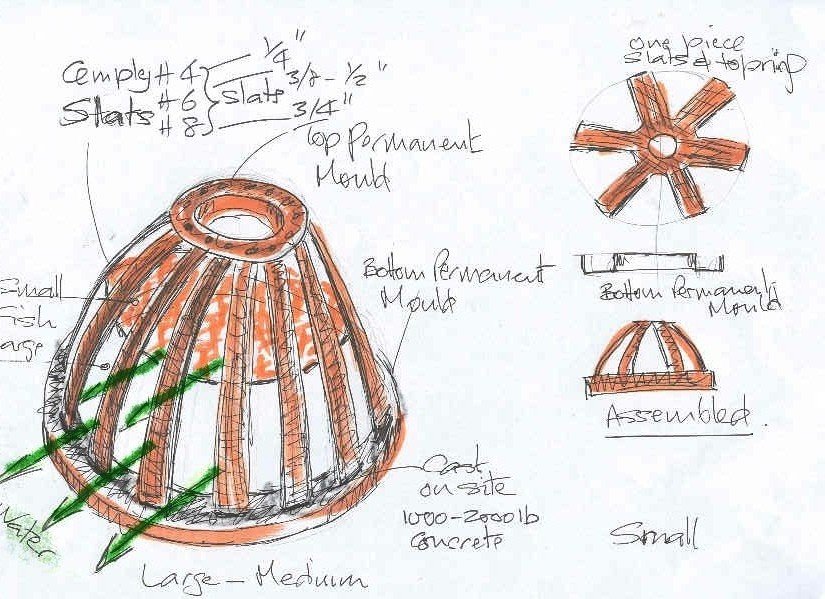 Cemply #4 1/4"
Slats #6 slats 3/8 - 1/2"
#8 3/4"
Top Permanent
Mould
one piece
slats & top ring
Bottom Permanent
Mould
Small
Fish
arge
Bottom Permanent
Mould
Assembled.
Cast
on site
1000-2000lb
concrete
Water
Large - Medium
Small